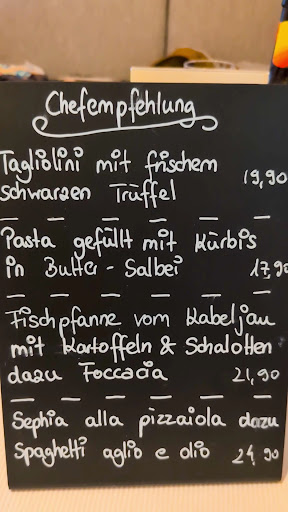 Chefempfehlung
Tagliolini mit frischem
schwarzen Trüffel 19,90
Pasta gefüllt mit Kürbis
in Butter-Salbei 17,90
Fischpfanne vom Kabeljau
mit Kartoffeln & Schalotten
dazu Foccacia 21,90
Sephia alla pizzaiola dazu
Spaghetti aglio e olio 24,90